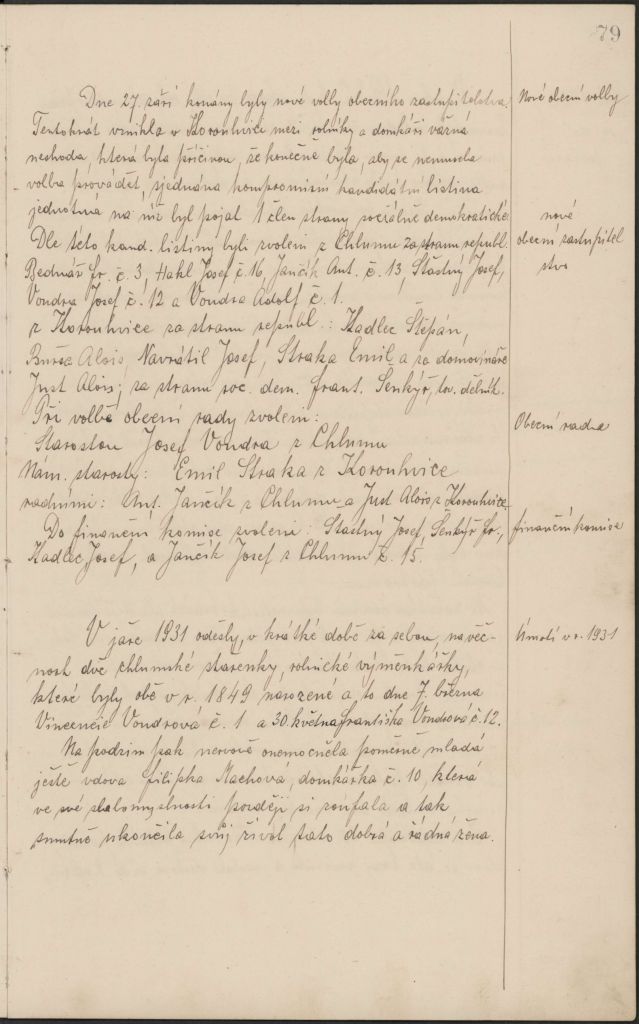 79
Dne 27. září konány byly nové volby obecního zastupitelstva.
Nové obecní volby
Tentokrát vznikla v Korouhvici mezi rolníky a domkáři vážná
neshoda, která byla příčinou, že konečně byla, aby se nemusela
volba provádět, sjednána kompromisní kandidátní listina
jednotná na níž byl pojat 1 člen strany sociálně demokratické.
nové
Dle této kand. listiny byli zvoleni z Chlumu za stranu republ.
obecní zastupitel
Bednář Fr. č. 3, Hakl Josef č. 16, Jančík Ant. č. 13, Šťastný Josef,
stvo
Vondra Josef č. 12 a Vondra Adolf č. 1.
z Korouhvice za stranu republ.: Kadlec Štěpán,
Burša Alois, Navrátil Josef, Straka Emil a za domovináře
Just Alois; za stranu soc. dem. Frant. Šenkýř, tov. dělník.
Při volbě obecní rady zvoleni:
Obecní rada
Starostou Josef Vondra z Chlumu
Nám. starosty: Emil Straka z Korouhvice
radními: Ant. Jančík z Chlumu a Just Alois z Korouhvice
Do finanční komise zvoleni: Šťastný Josef, Šenkýř Fr.,
finanční komise
Kadlec Josef, a Jančík Josef z Chlumu č. 15.
V jaře 1931 odešly, v krátké době za sebou, na věč-
Úmrtí v r. 1931
nost dvě chlumské stařenky, rolnické výměnkářky,
které byly obě v r. 1849 narozené a to dne 7. března
Vincencie Vondrová č. 1 a 30. května Františka Vondrová č. 12.
Na podzim pak nervově onemocněla poměrně mladá
ještě vdova Filipka Machová, domkářka č. 10, která
ve své slabomyslnosti později si zoufala a tak
smutně ukončila svůj život tato dobrá a řádná žena.